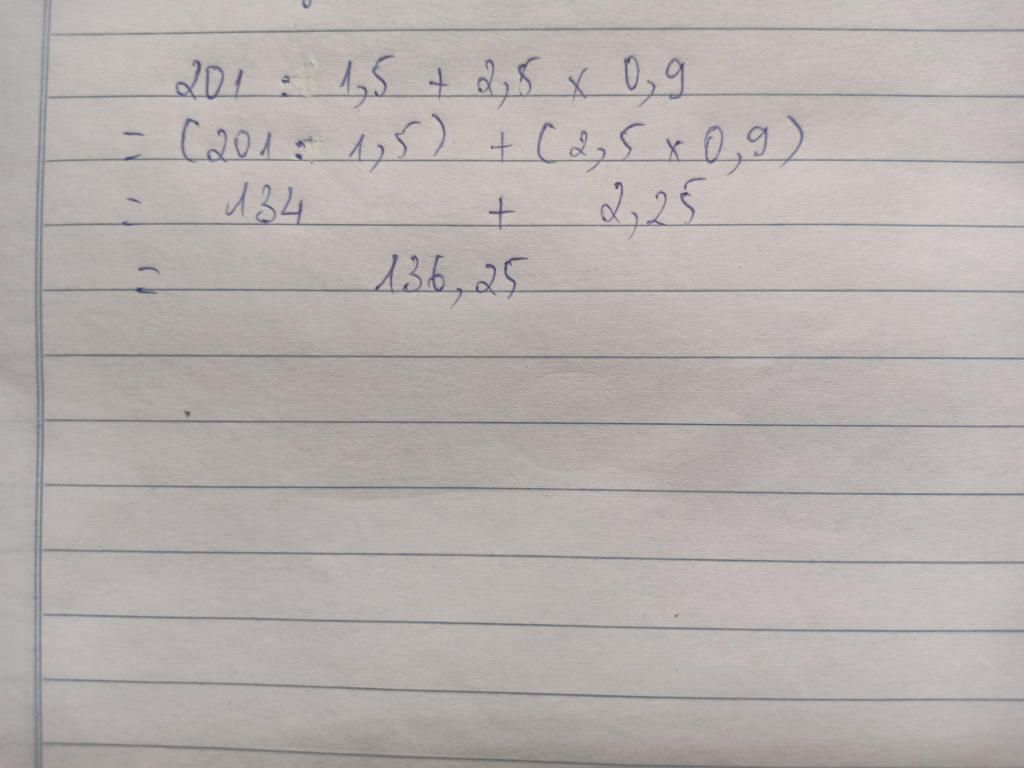 201 : 1,5 + 2,5 x 0,9
= (201 : 1,5) + (2,5 x 0,9)
= 134 + 2,25
= 136,25